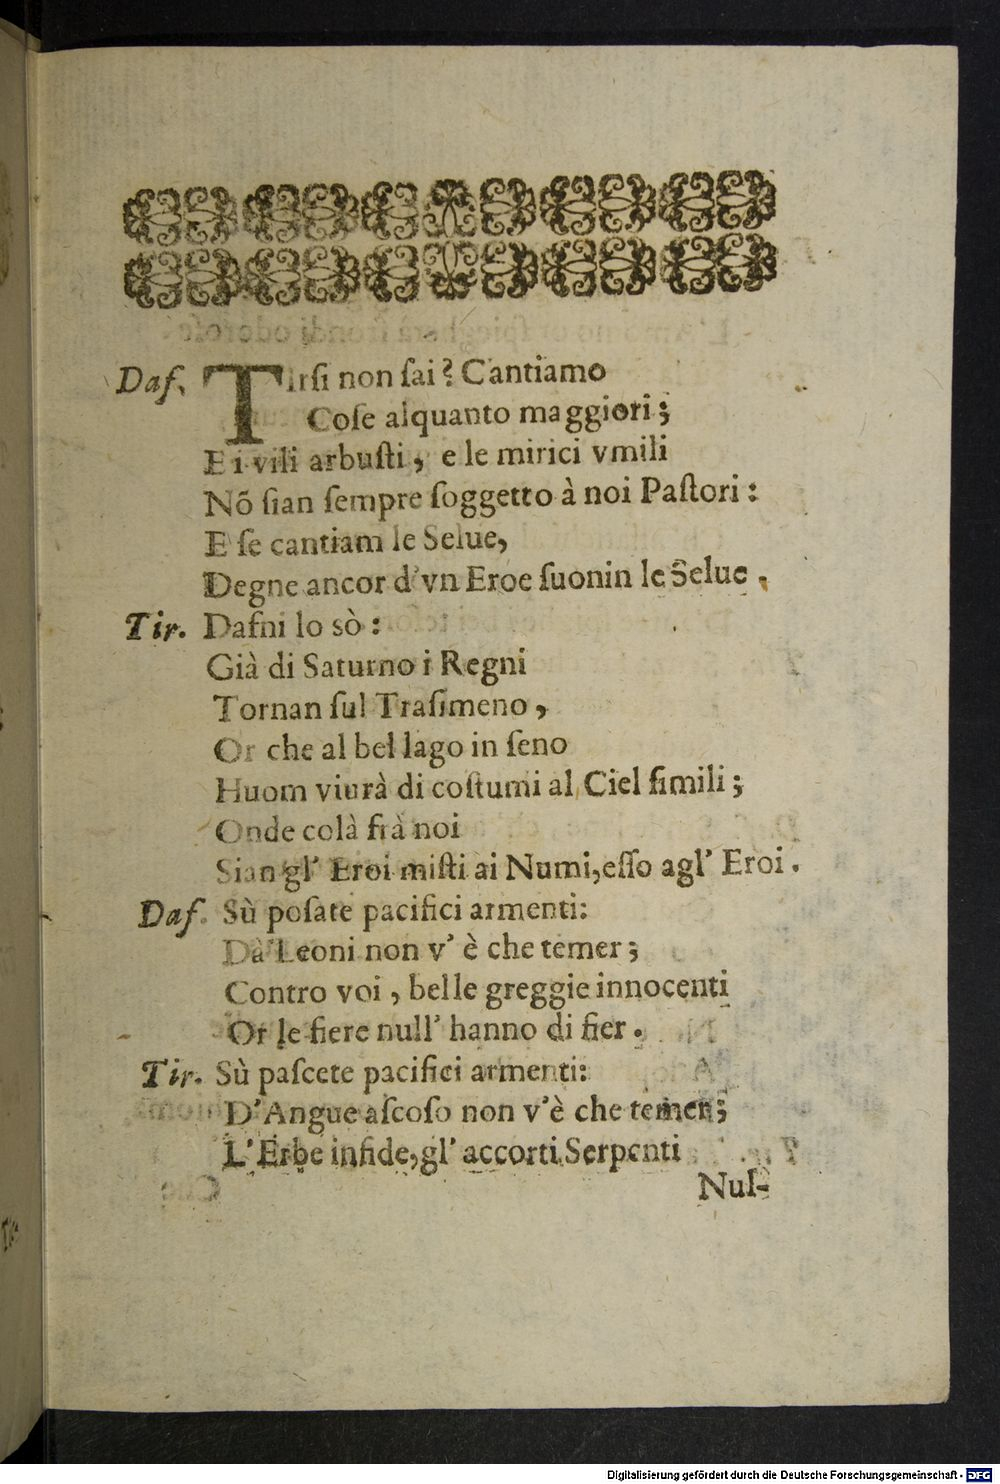 Daf. Tirſi non ſai? Cantiamo
Coſe alquanto maggiori;
E i vili arbuſti, e le mirici vmili
Nõ ſian ſempre ſoggetto à noi Paſtori:
E ſe cantiam le Selue,
Degne ancor d'vn Eroe ſuonin le Selue.
Tir. Dafni lo sò:
Già di Saturno i Regni
Tornan ſul Traſimeno,
Or che al bel lago in ſeno
Huom viurà di coſtumi al Ciel ſimili;
Onde colà frà noi
Sian gl' Eroi miſti ai Numi, eſſo agl' Eroi.
Daf. Sù poſate pacifici armenti:
Dà Leoni non v' è che temer;
Contro voi, belle greggie innocenti
Or le fiere null' hanno di fier.
Tir. Sù paſcete pacifici armenti:
D'Angue aſcoſo non v'è che temer;
L'Erbe infide, gl' accorti Serpenti
Nul-
Digitalisierung gefördert durch die Deutsche Forschungsgemeinschaft - DFG